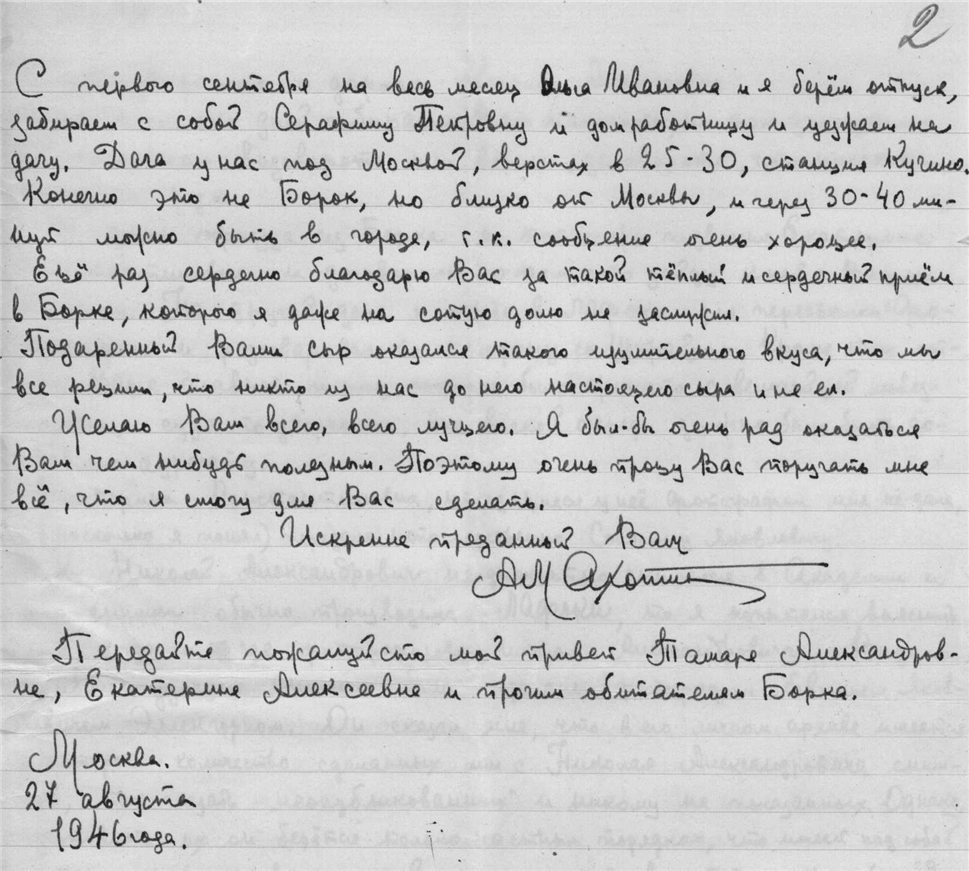 2
С первого сентября на весь месяц Ольга Ивановна и я берём отпуск,
забираем с собой Серафиму Петровну и домработницу и уезжаем на
дачу. Дача у нас под Москвой, верстах в 25-30, станция Кучино.
Конечно это не Борок, но близко от Москвы, и через 30-40 ми-
нут можно быть в городе, т.к. сообщение очень хорошее.
Ещё раз сердечно благодарю Вас за такой тёплый и сердечный приём
в Борке, которого я даже на сотую долю не заслужил.
Подаренный Вами сыр оказался такого изумительного вкуса, что мы
все решили, что никто из нас до него настоящего сыра и не ел.
Желаю Вам всего, всего лучшего. Я был-бы очень рад оказаться
Вам чем нибудь полезным. Поэтому очень прошу Вас поручать мне
всё, что я смогу для Вас сделать.
Искренне преданный Вам
Передайте пожалуйста мой привет Тамаре Александров-
не, Екатерине Алексеевне и прочим обитателям Борка.
Москва.
27 августа
1946 года.